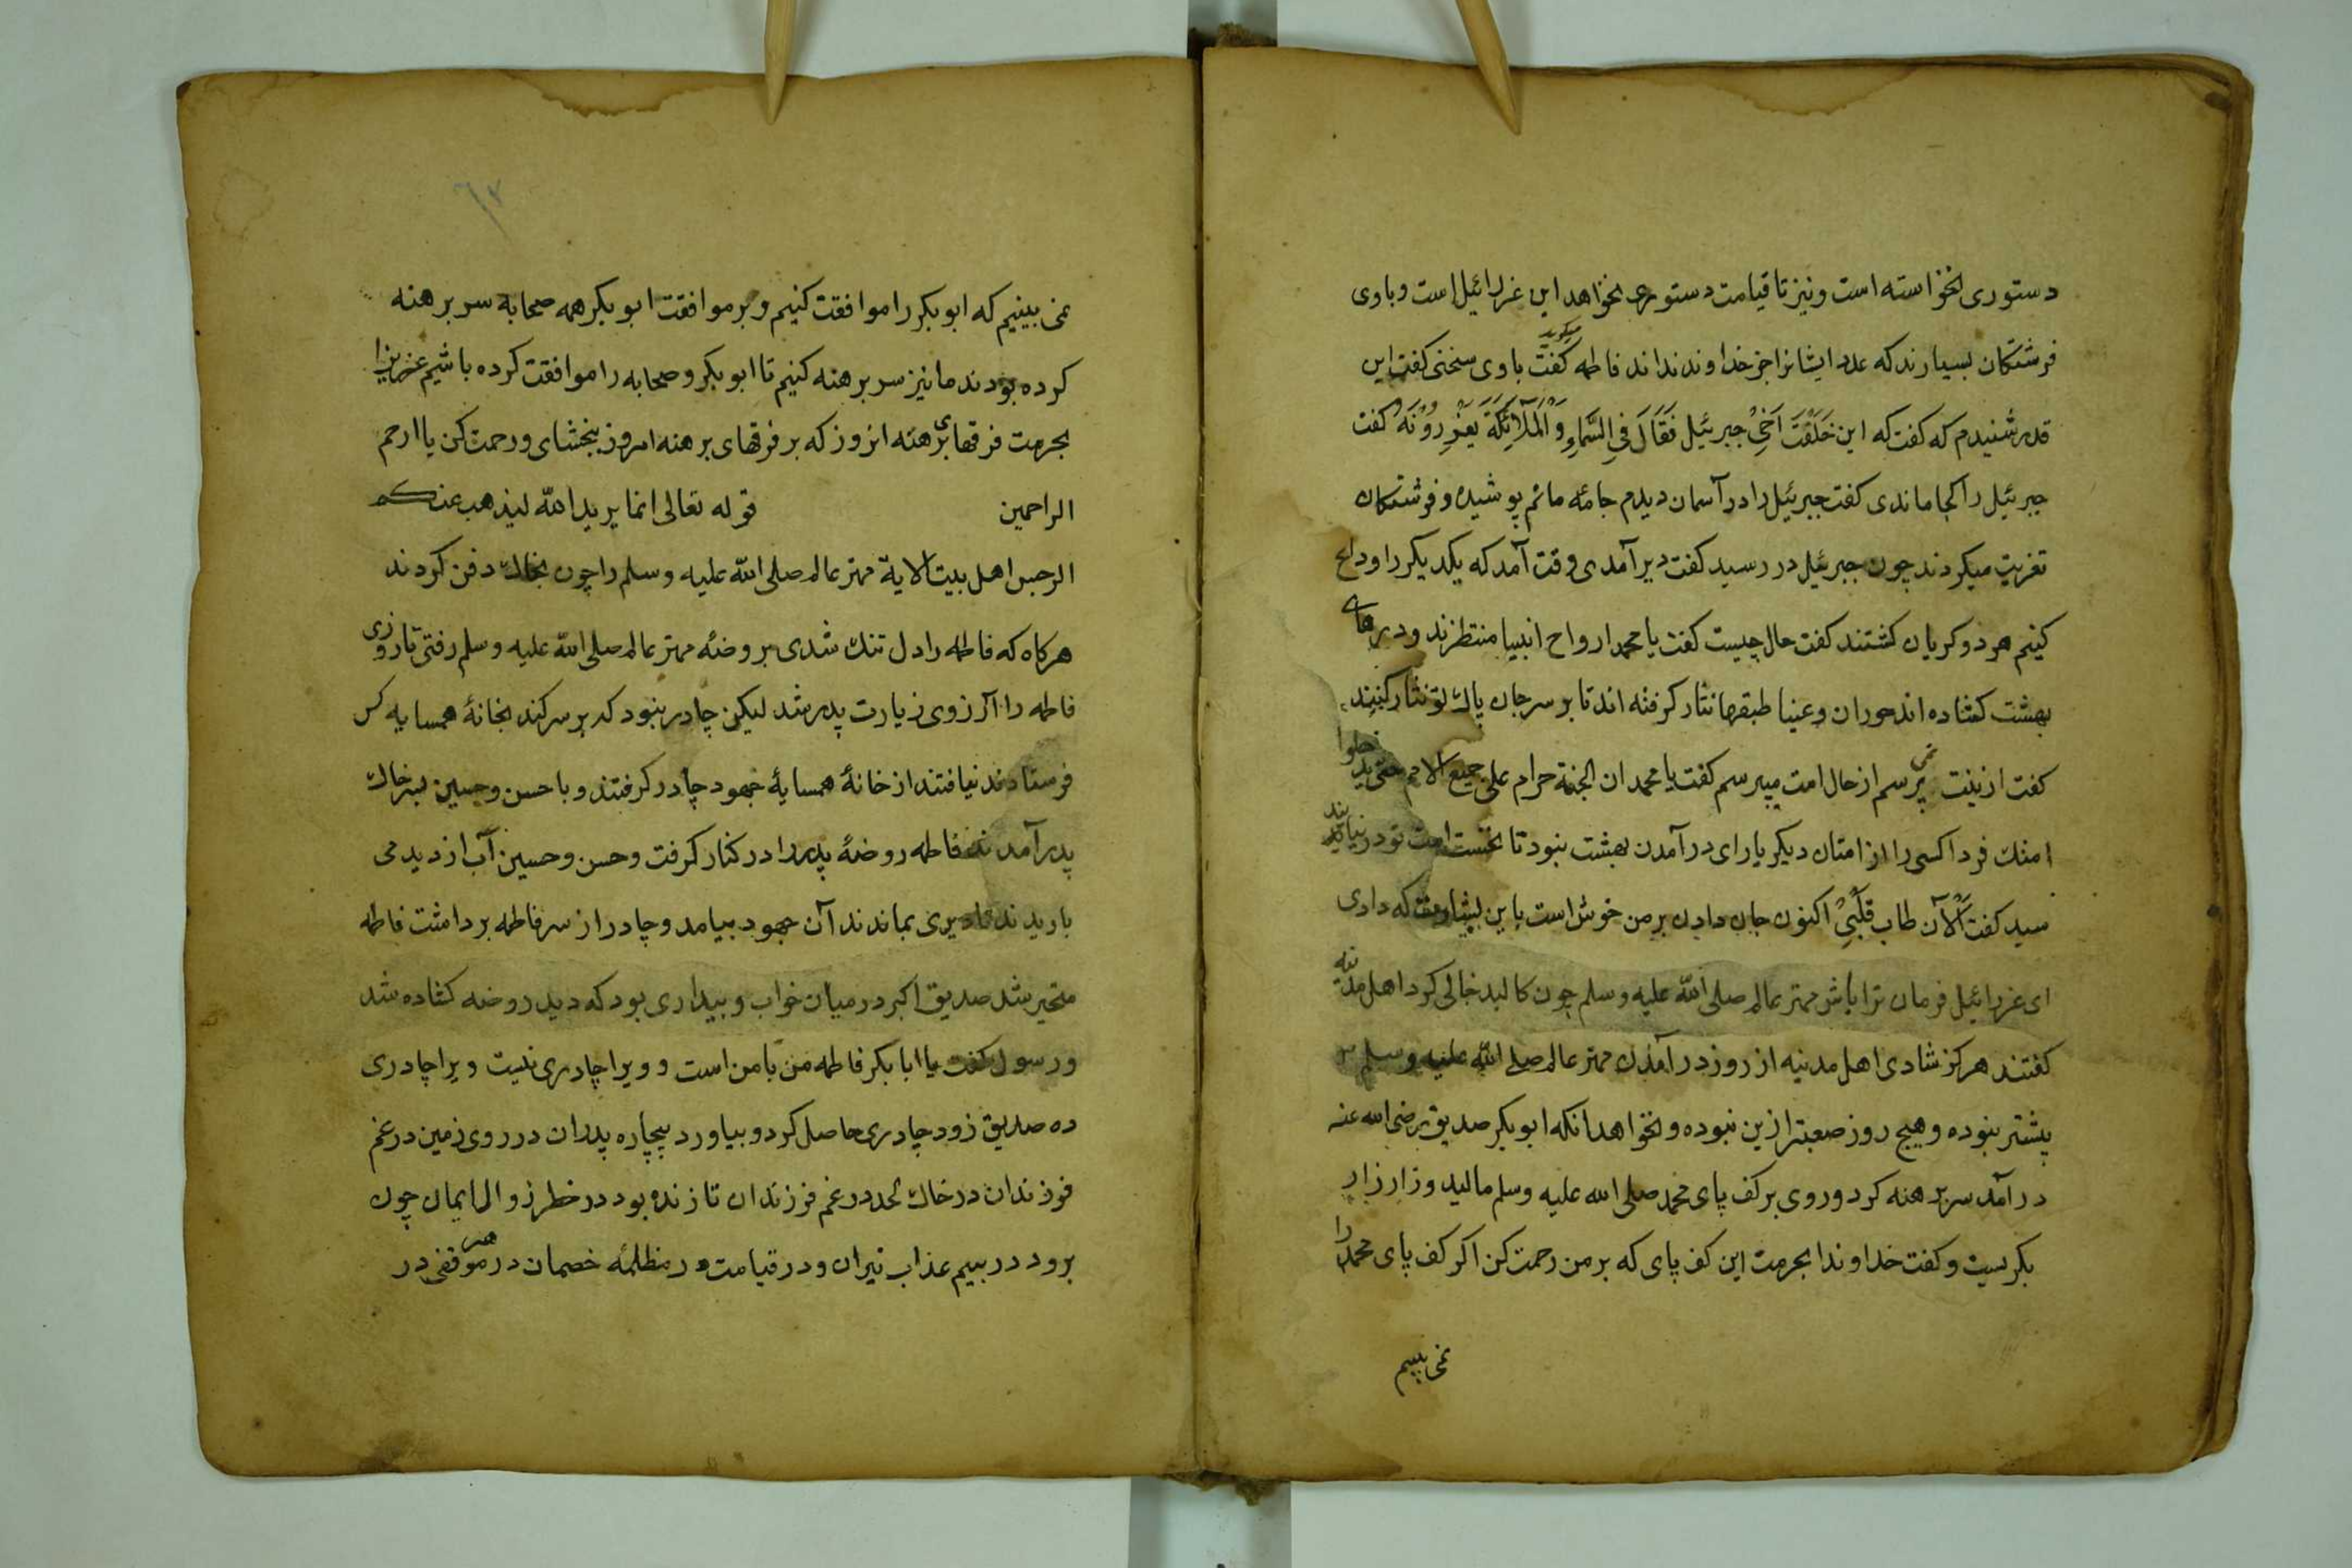 دستوری نخواسته است و نیز تا قیامت دستوری نخواهد این عزرائیل است و باوی
فرشتکان بسیارند که عدد ایشانرا جز خداوند نداند فاطمه کفت میکوید باوی سخنی کفت این
قدر شنیدم که کفت که این خَلَّفْتَ اَخِیْ جبرئیل فَقَالَ فِی السَّمَاءِ وَالْمَلَآئِکَةُ یُعَزِّرُوْنَهُ کفت
جبرئیل را کجا ماندی کفت جبرئیل را در آسمان دیدم جامه ماتم پوشیده و فرشتکان
تعزیت میکردند چون جبرئیل در رسید کفت دیر آمدی وقت آمد که یکدیکر را وداع
کنیم هر دو کریان کشتند کفت حال چیست کفت یا محمد ارواح انبیا منتظرند و درهای
بهشت کشاده اند حوران و عینا طبقها نثار کرفته اند تا بر سر جان پاک تو نثار کنند
کفت ازینت نمی پرسم از حال امت میپرسم کفت یا محمد ان الجنة حرام علی جمیع الامم حتی یدخلوا
امتک فردا کسی را از امتان دیکر یارای در آمدن بهشت نبود تا نخست امت تو در نیایند
سید کفت اَلْآن طاب قَلْبِیْ اکنون جان دادن بر من خوش است باین بشارت که دادی
ای عزرائیل فرمان ترا باش مهتر عالم صلی الله علیه وسلم چون کالبد خالی کرد اهل مدینه
کفتند هرکز شادی اهل مدنیه از روز در آمدن مهتر عالم صلی الله علیه وسلم
پیشتر نبوده و هیچ روز صعبتر ازین نبوده و نخواهد انکه ابوبکر صدیق رضی الله عنه
در آمد سر برهنه کرد و روی بر کف پای محمد صلی الله علیه وسلم مالید و زار زار
بکریست و کفت خداوندا بحرمت این کف پای که بر من رحمت کن اکر کف پای محمد را
نمی بینیم
٦٢
نمی بینیم که ابوبکر را موافقت کنیم و بر موافقت ابوبکر همه صحابه سر برهنه
کرده بودند ما نیز سر برهنه کنیم تا ابوبکر و صحابه را موافقت کرده باشیم عزیزا
بحرمت فرقهای برهنه انروز که بر فرقهای برهنه امروز ببخشای و رحمت کن یا ارحم
الراحمین قوله تعالی انما یرید الله لیذهب عنکم
الرجس اهل بیت الایة مهتر عالم صلی الله علیه وسلم را چون بخاک دفن کردند
هرکاه که فاطمه را دل تنک شدی بروضهٔ مهتر عالم صلی الله علیه وسلم رفتی تا روزی
فاطمه را آرزوی زیارت پدر شد لیکن چادر نبود که بر سر کند بخانهٔ همسایه کس
فرستادند نیافتند از خانهٔ همسایهٔ جهود چادر کرفتند و با حسن و حسین بسر خاک
پدر آمدند فاطمه روضهٔ پدر را در کنار کرفت و حسن و حسین آب از دید می
باریدند تا دیری بماندند آن جهود بیامد و چادر از سر فاطمه برداشت فاطمه
متحیر شد صدیق اکبر در میان خواب و بیداری بود که دید روضه کشاده شد
و رسول کفت یا ابا بکر فاطمه من با من است و ویرا چادری نیست ویرا چادری
ده صدیق زود چادری حاصل کرد و بیاورد بیچاره پدران در روی زمین در غم
فرزندان در خاک لحد در غم فرزندان تا زنده بود در خطر زوال ایمان چون
برود در بیم عذاب نیران و در قیامت در مظلمهٔ خصمان در هر موقفی در